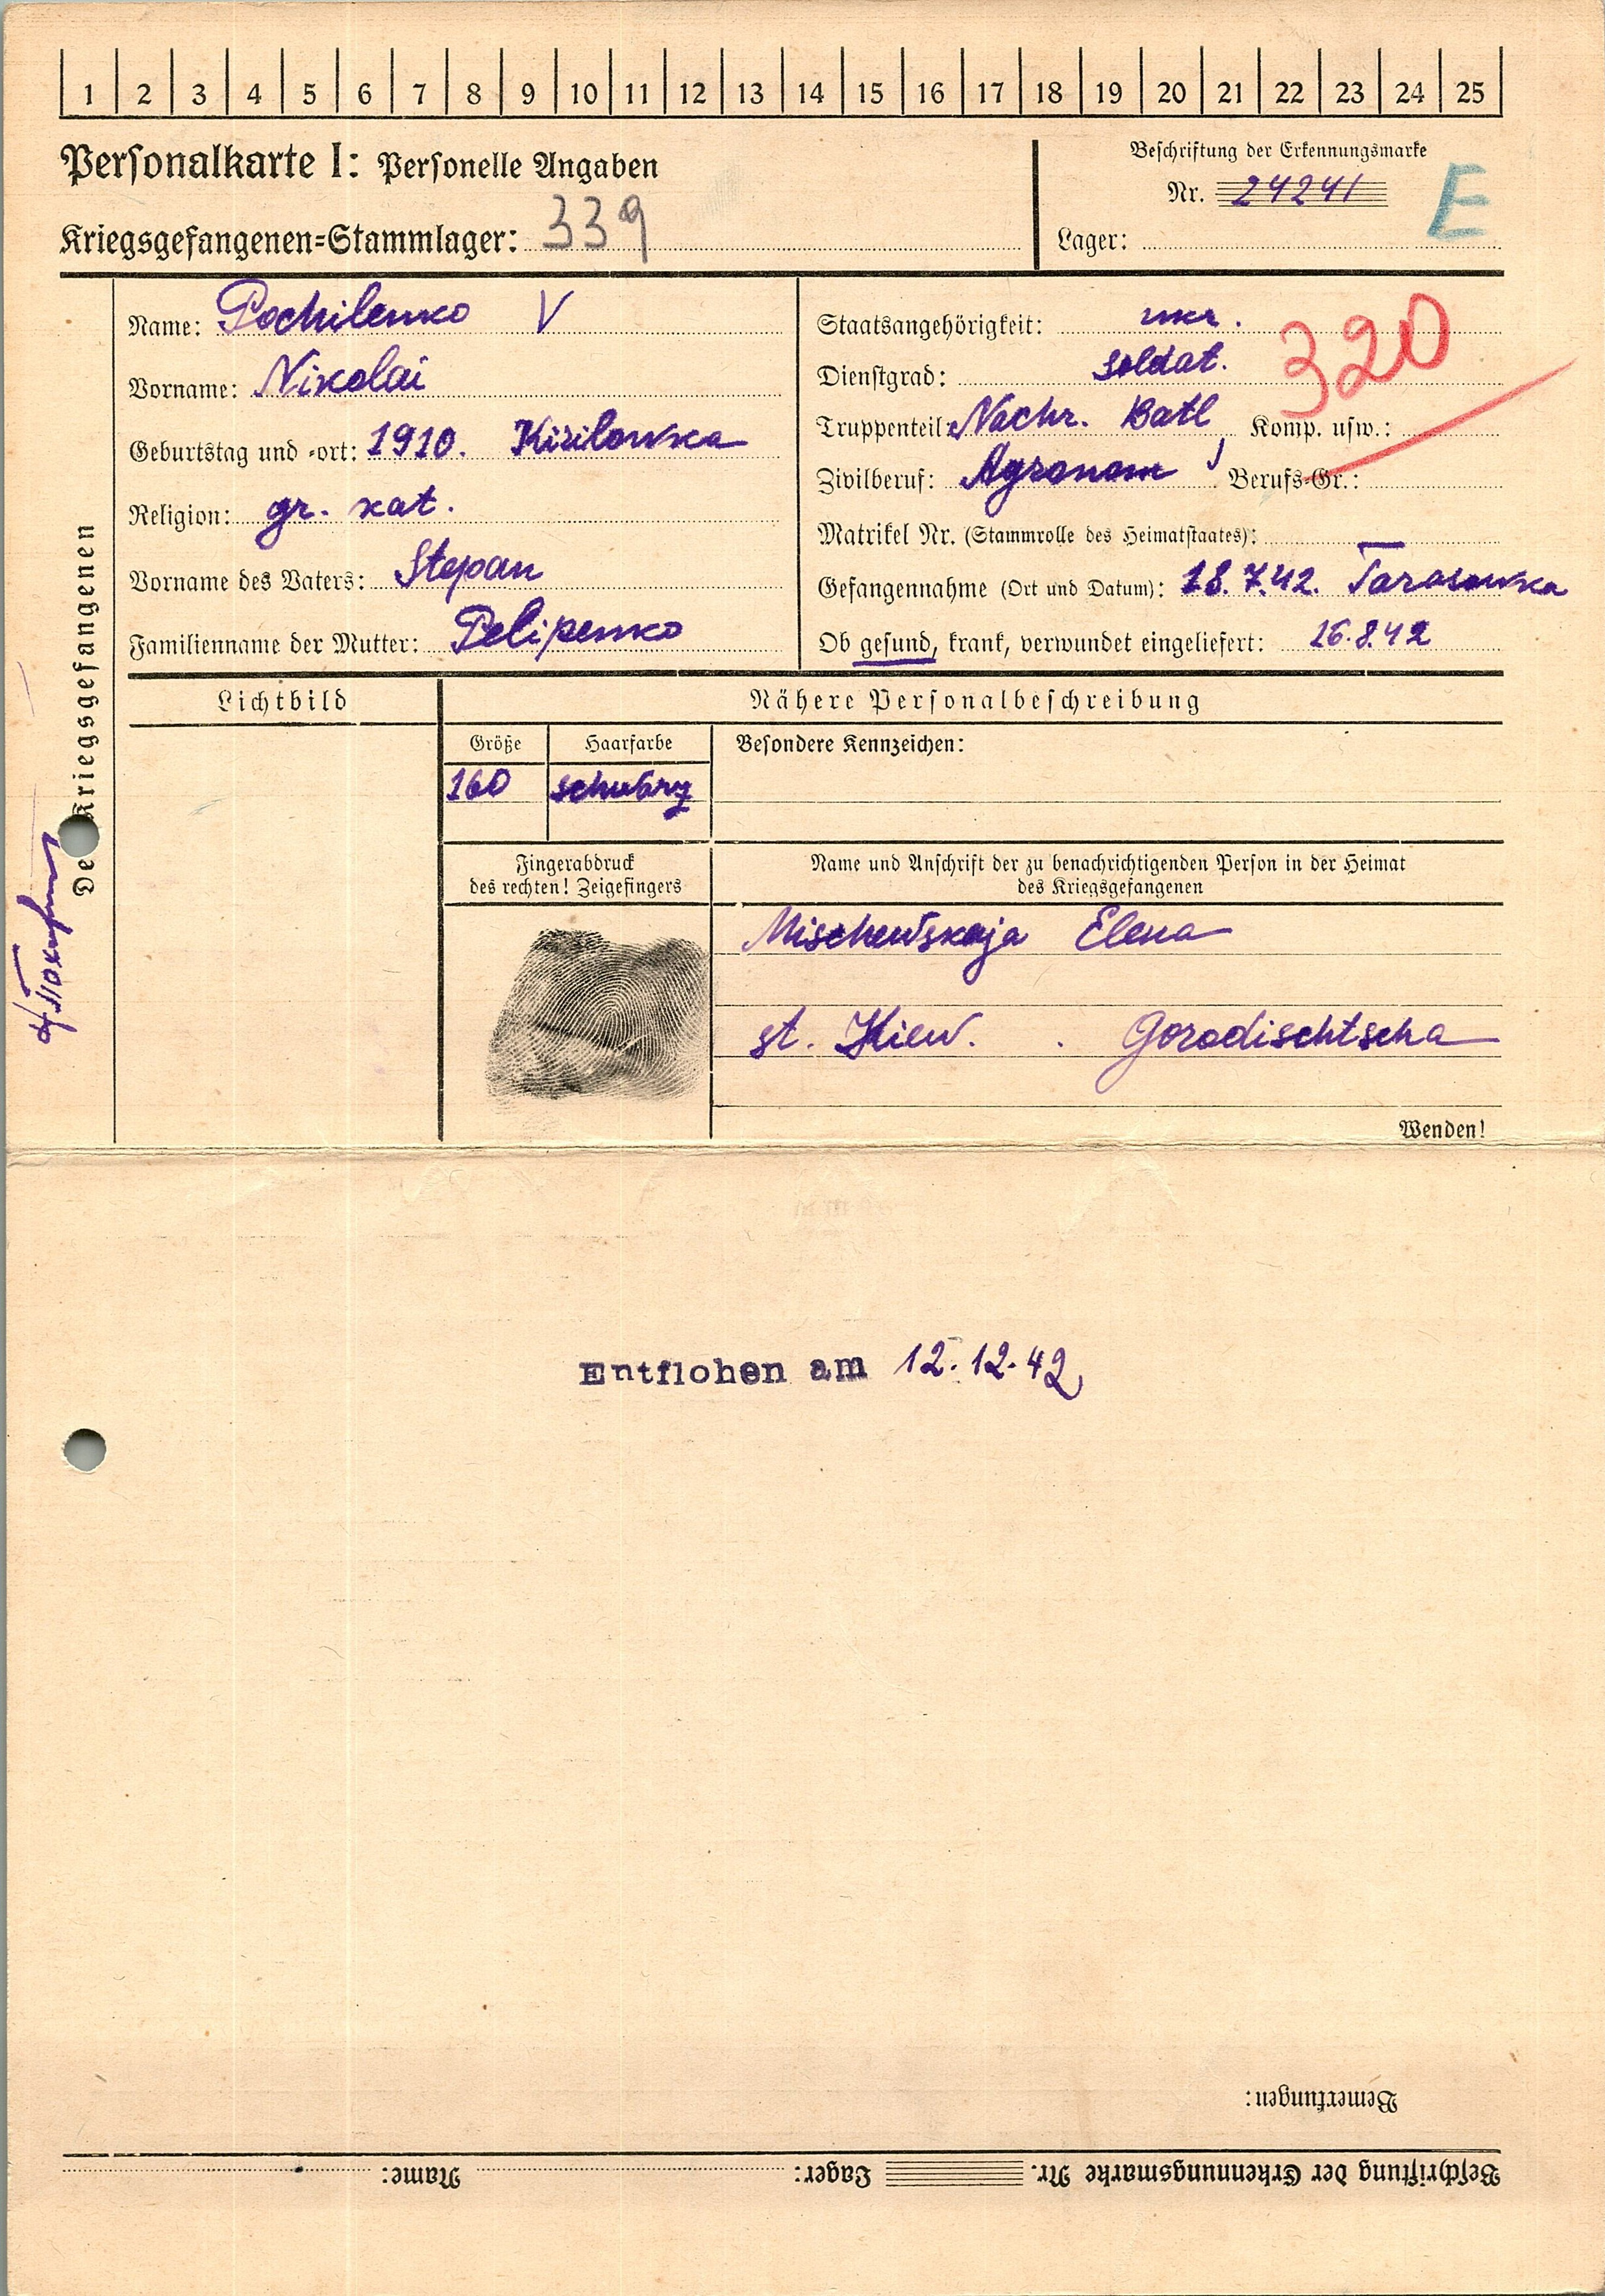 1 2 3 4 5 6 7 8 9 10 11 12 13 14 15 16 17 18 19 20 21 22 23 24 25
Personalkarte I: Personelle Angaben
Kriegsgefangenen=Stammlager: 339
Beschriftung der Erkennungsmarke
Nr. 24241
E
Lager:
Des Kriegsgefangenen
Name: Pochilenko V
Vorname: Nikolai
Geburtstag und -ort: 1910. Kirilowka
Religion: gr. kat.
Vorname des Vaters: Stepan
Familienname der Mutter: Pelipenko
Staatsangehörigkeit: ukr.
320
Dienstgrad: Soldat.
Truppenteil: Nachr. Batl, Komp. usw.:
Zivilberuf: Agronom Berufs-Gr.:
Matrikel Nr. (Stammrolle des Heimatstaates): —
Gefangennahme (Ort und Datum): 18.7.42. Tarasowka
Ob gesund, krank, verwundet eingeliefert: 16.8.42
Lichtbild
Nähere Personalbeschreibung
Größe
160
Haarfarbe
schwarz
Besondere Kennzeichen:
Fingerabdruck
des rechten! Zeigefingers
Name und Anschrift der zu benachrichtigenden Person in der Heimat
des Kriegsgefangenen
Mischewskaja Elena
st. Kiew. . Gorodischtscha
Wenden!
Entflohen am 12.12.42
Bemerkungen:
Beschriftung der Erkennungsmarke Nr. Lager: Name: